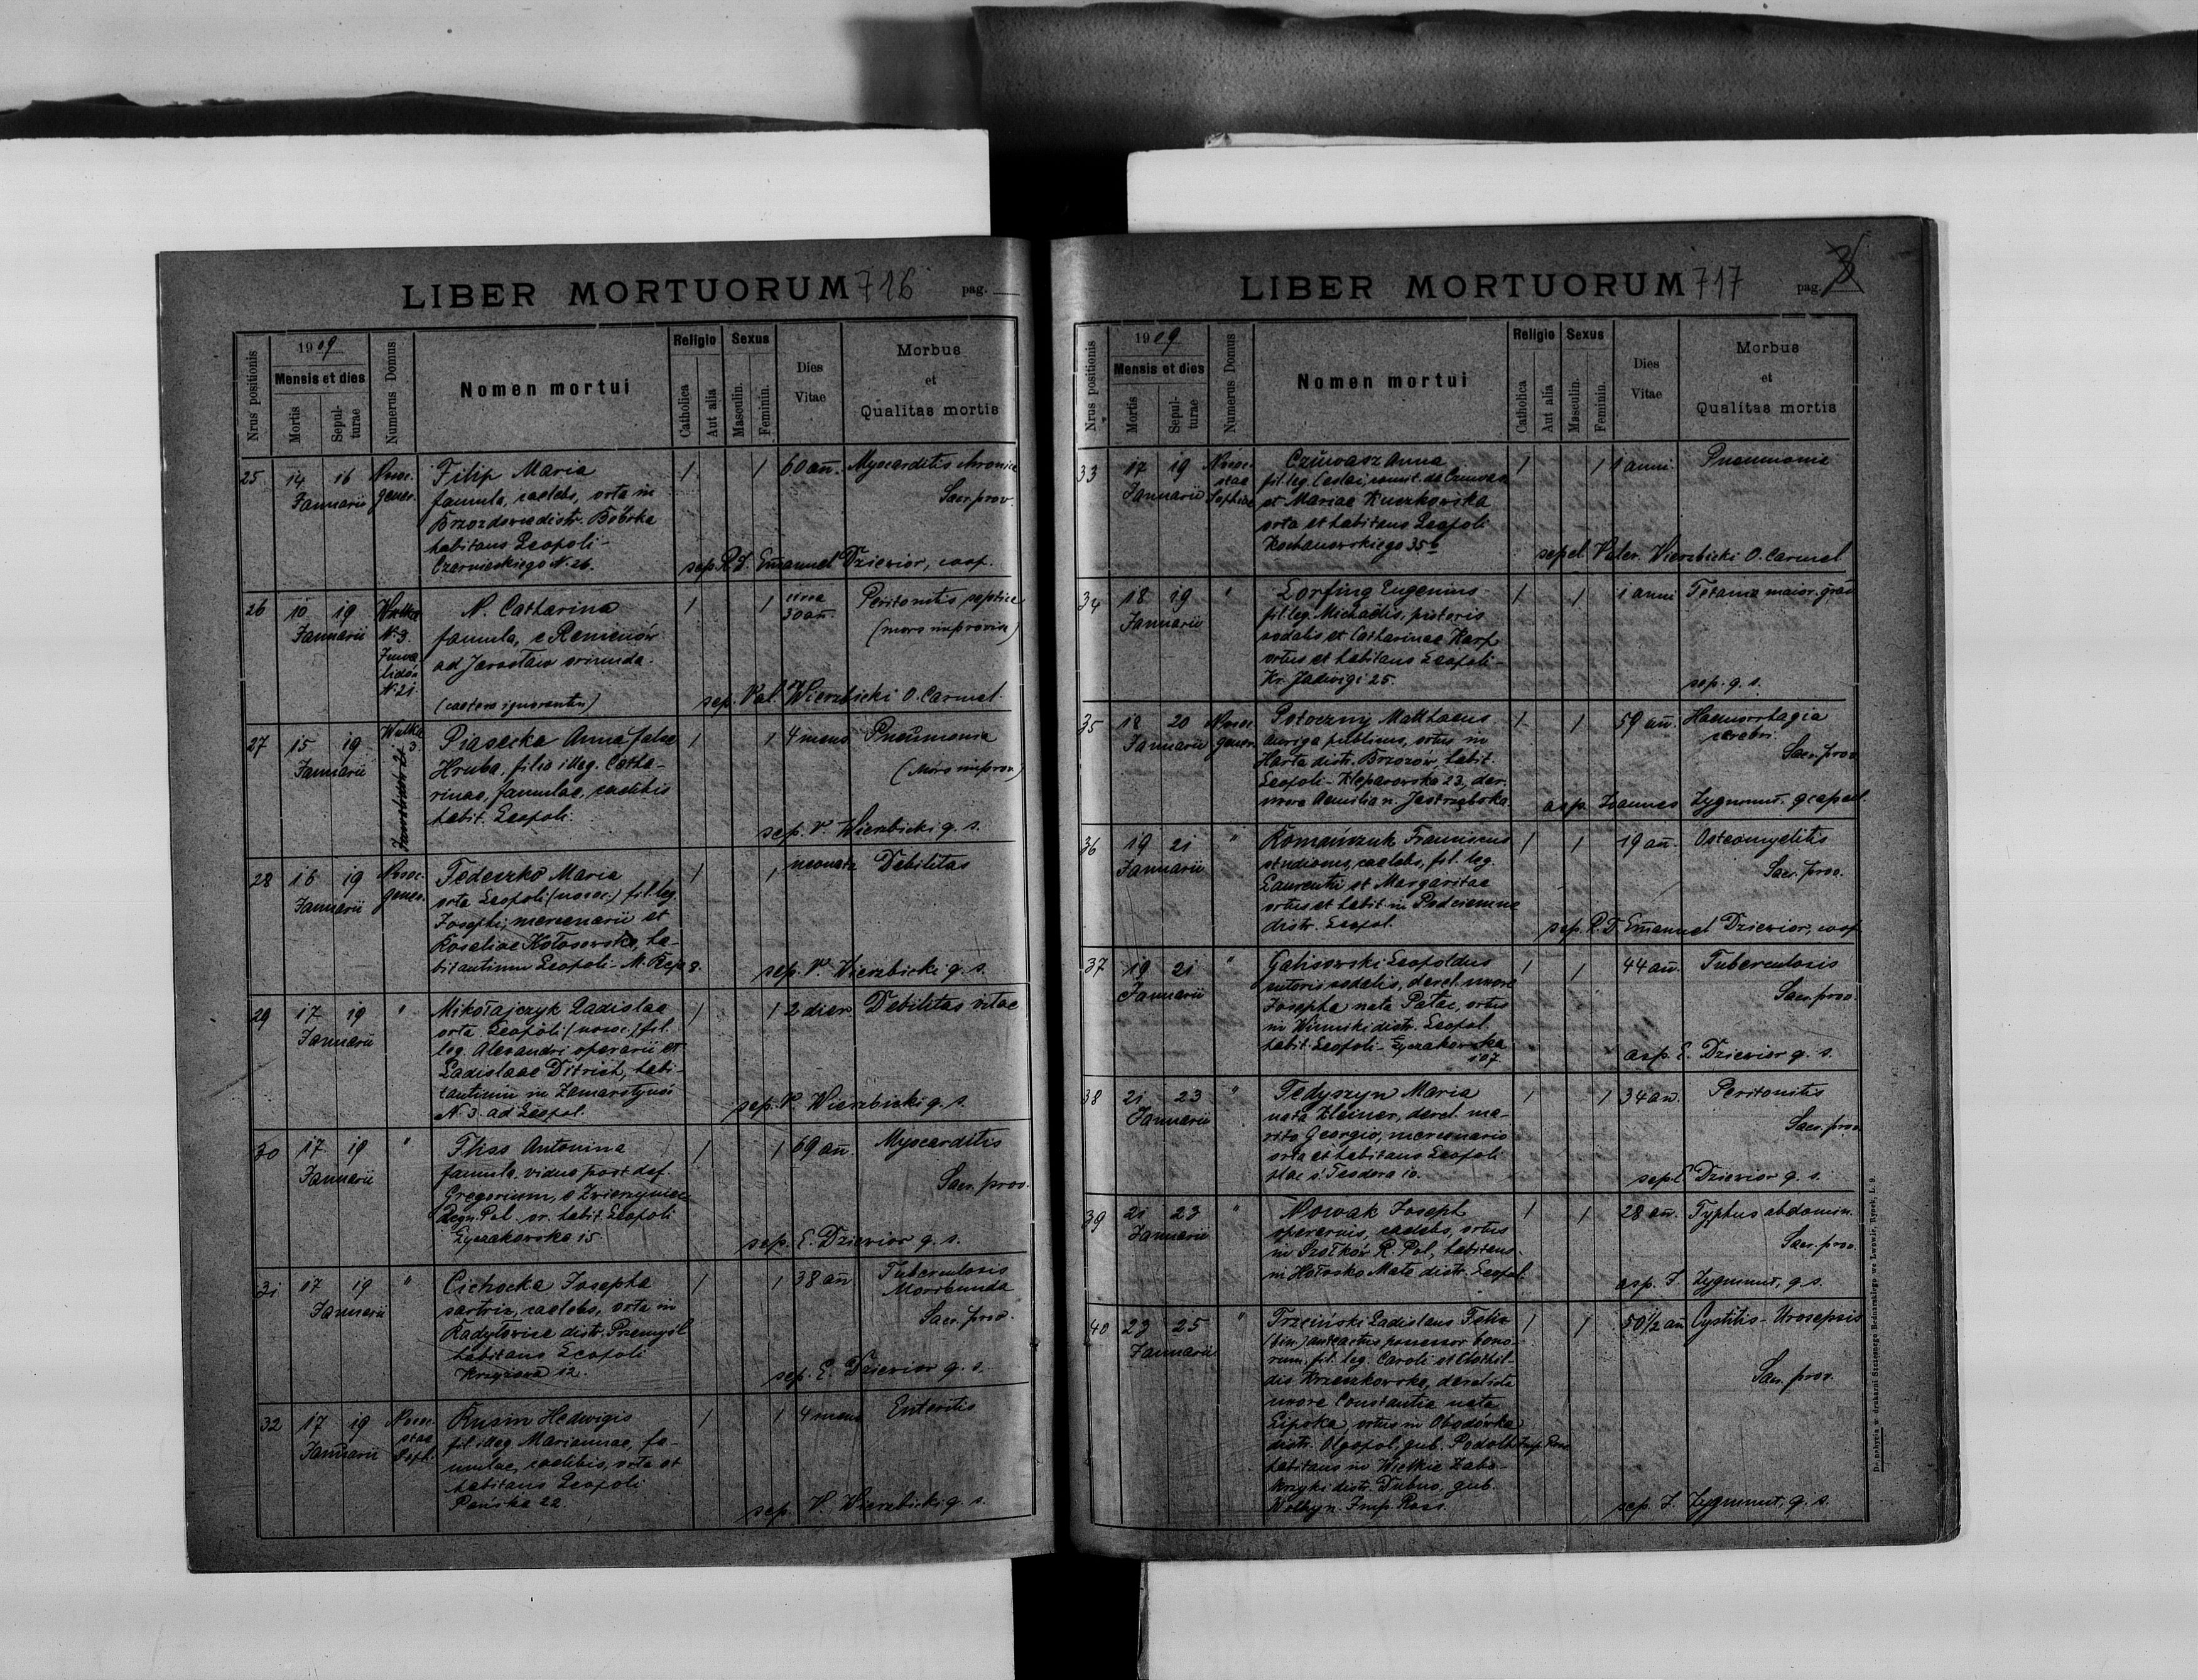 LIBER MORTUORUM 716 pag.
Nrus positionis
1909
Mensis et dies
Mortis
Sepulturae
Numerus Domus
Nomen mortui
Religio
Catholica
Aut alia
Sexus
Masculin.
Feminin.
Dies
Vitae
Morbus
et
Qualitas mortis
25 14 16 Nosoc. Filip Maria 1 1 60 an̄. Myocarditis chronica
Januarii gener. famula, caelebs, orta in Sacr. prov.
Brzozdowce distr. Bóbrka
habitans Leopoli -
Czarnieckiego N. 26. sep. R. D. Emanuel Dziewior, coop.
26 10 19 Wulka N. Catharina 1 1 circa Peritonitis septica
Januarii N. 3. famula, e Remienów 30 an̄. (mors improvisa)
Inwalidów ad Jarosław oriunda.
N. 21.
(caetera ignorantur) sep. Val. Wierzbicki O. Carmel.
27 15 19 Wulka 3. Piasecka Anna false 1 1 4 mens Pneumonia
Januarii Hruba, filia illeg. Catha- (Mors improv.)
rinae, famulae, caelibis
habit. Leopoli. sep. V. Wierzbicki q. s.
28 16 19 Nosoc. Fedeszko Maria 1 1 neonata Debilitas
Januarii gener. orta Leopoli (nosoc.) fil. leg.
Josephi, mercenarii et
Rosaliae Kołosowska, ha-
bitantium Leopoli - M. Reja 8. sep. V. Wierzbicki q. s.
29 17 19 " Mikołajczyk Ladislaa 1 1 2 dier. Debilitas vitae
Januarii orta Leopoli (nosoc.) fil.
leg. Alexandri operarii et
Ladislaae Ditrich, habi-
tantium in Zamarstynów
N. 3. ad Leopol. sep. V. Wierzbicki q. s.
30 17 19 " Fliss Antonina 1 1 69 an̄. Myocarditis
Januarii famula, vidua post def. Sacr. prov.
Gregorium, e Zwierzyniec
Regn. Pol. or. habit. Leopoli
Łyczakowska 15. sep. E. Dziewior q. s.
31 17 19 " Cichocka Josepha 1 1 38 an̄ Tuberculosis
Januarii sartrix, caelebs, orta in Moribunda
Radyłowice distr. Przemyśl Sacr. prov.
habitans Leopoli
Krzyżowa 12. sep. E. Dziewior q. s.
32 17 19 Nosoc. Kusin Hedwigis 1 1 4 mens Enteritis
Januarii stae Soph. fil. illeg. Mariannae, fa-
mulae, caelibis, orta et
habitans Leopoli
Pańska 22. sep. V. Wierzbicki q. s.
LIBER MORTUORUM 717 pag.
Nrus positionis
1909
Mensis et dies
Mortis
Sepulturae
Numerus Domus
Nomen mortui
Religio
Catholica
Aut alia
Sexus
Masculin.
Feminin.
Dies
Vitae
Morbus
et
Qualitas mortis
33 17 19 Nosoc. Czůwasz Anna 1 1 1 anni Pneumonia
Januarii stae Sophiae fil. leg. comit. de
et Mariae Kuczkowska
orta et habitans Leopoli
Kochanowskiego 35b sepel. Valer. Wierzbicki O. Carmel
34 18 19 " Lorfing Eugenius 1 1 1 anni Tetania maior. grad
Januarii fil. leg. Michaelis, pistoris
sodalis et Catharinae Karp
ortus et habitans Leopoli -
Kr. Jadwigi 25. sep. q. s.
35 18 20 Nosoc. Potoczny Matthaeus 1 1 59 an̄. Haemorrhagia
Januarii gener. auriga publicus, ortus in cerebri.
Harta distr. Brzozów, habit. Sacr. prov.
Leopoli - Kleparowska 23, der.
uxore Aemilia n. Jastrzębska. asp. Joannes Zygmunt.
36 19 21 " Romańczuk Franciscus 1 1 19 an̄. Osteomyelitis
Januarii studiosus, caelebs, fil. leg. Sacr. prov.
Laurentii et Margaritae
ortus et habit. in Podciemne
distr. Leopol. sep. R. D. Emanuel Dziewior, coop.
37 19 21 " Galisowski Leopoldus 1 1 44 an̄. Tuberculosis
Januarii sutoris sodalis, derel. uxore Sacr. prov.
Josepha nata Patac, ortus
in Winniki distr. Leopol
habit. Leopoli - Łyczakowska
107. asp. E. Dziewior q. s.
38 21 23 " Fedyszyn Maria 1 1 34 an̄. Peritonitis
Januarii nata Kleiner, derel. ma- Sacr. prov.
rito Georgio, mercenario
orta et habitans Leopoli
plac ś. Teodora 10. sepel. E. Dziewior q. s.
39 21 23 " Nowak Joseph 1 1 28 an̄. Typhus abdomin.
Januarii operarius, caelebs, ortus Sacr. prov.
in R. Pol., habitans
in Hołosko Małe distr. Leopol. asp. J. Zygmunt, q. s.
40 23 25 " Trzciński Ladislaus Felix 1 1 50 1/2 an̄ Cystitis - Urosepsis
Januarii (bin.) possessor bono-
rum, fil. leg. Caroli et Clothil- Sacr. prov.
dis Krzeczkowska, derelicta
uxore Constantia nata
Lipska, ortus in Obodówka
distr. Olgopol, gub. Podolh Imp. Ross
habitans in Wielkie Zabo-
krzyki distr. Dubno, gub.
Wolhyn. Imp. Ross. sep. J. Zygmunt, q. s.
Do nabycia w drukarni Szczęsnego Bednarskiego we Lwowie, Rynek, L. 9.